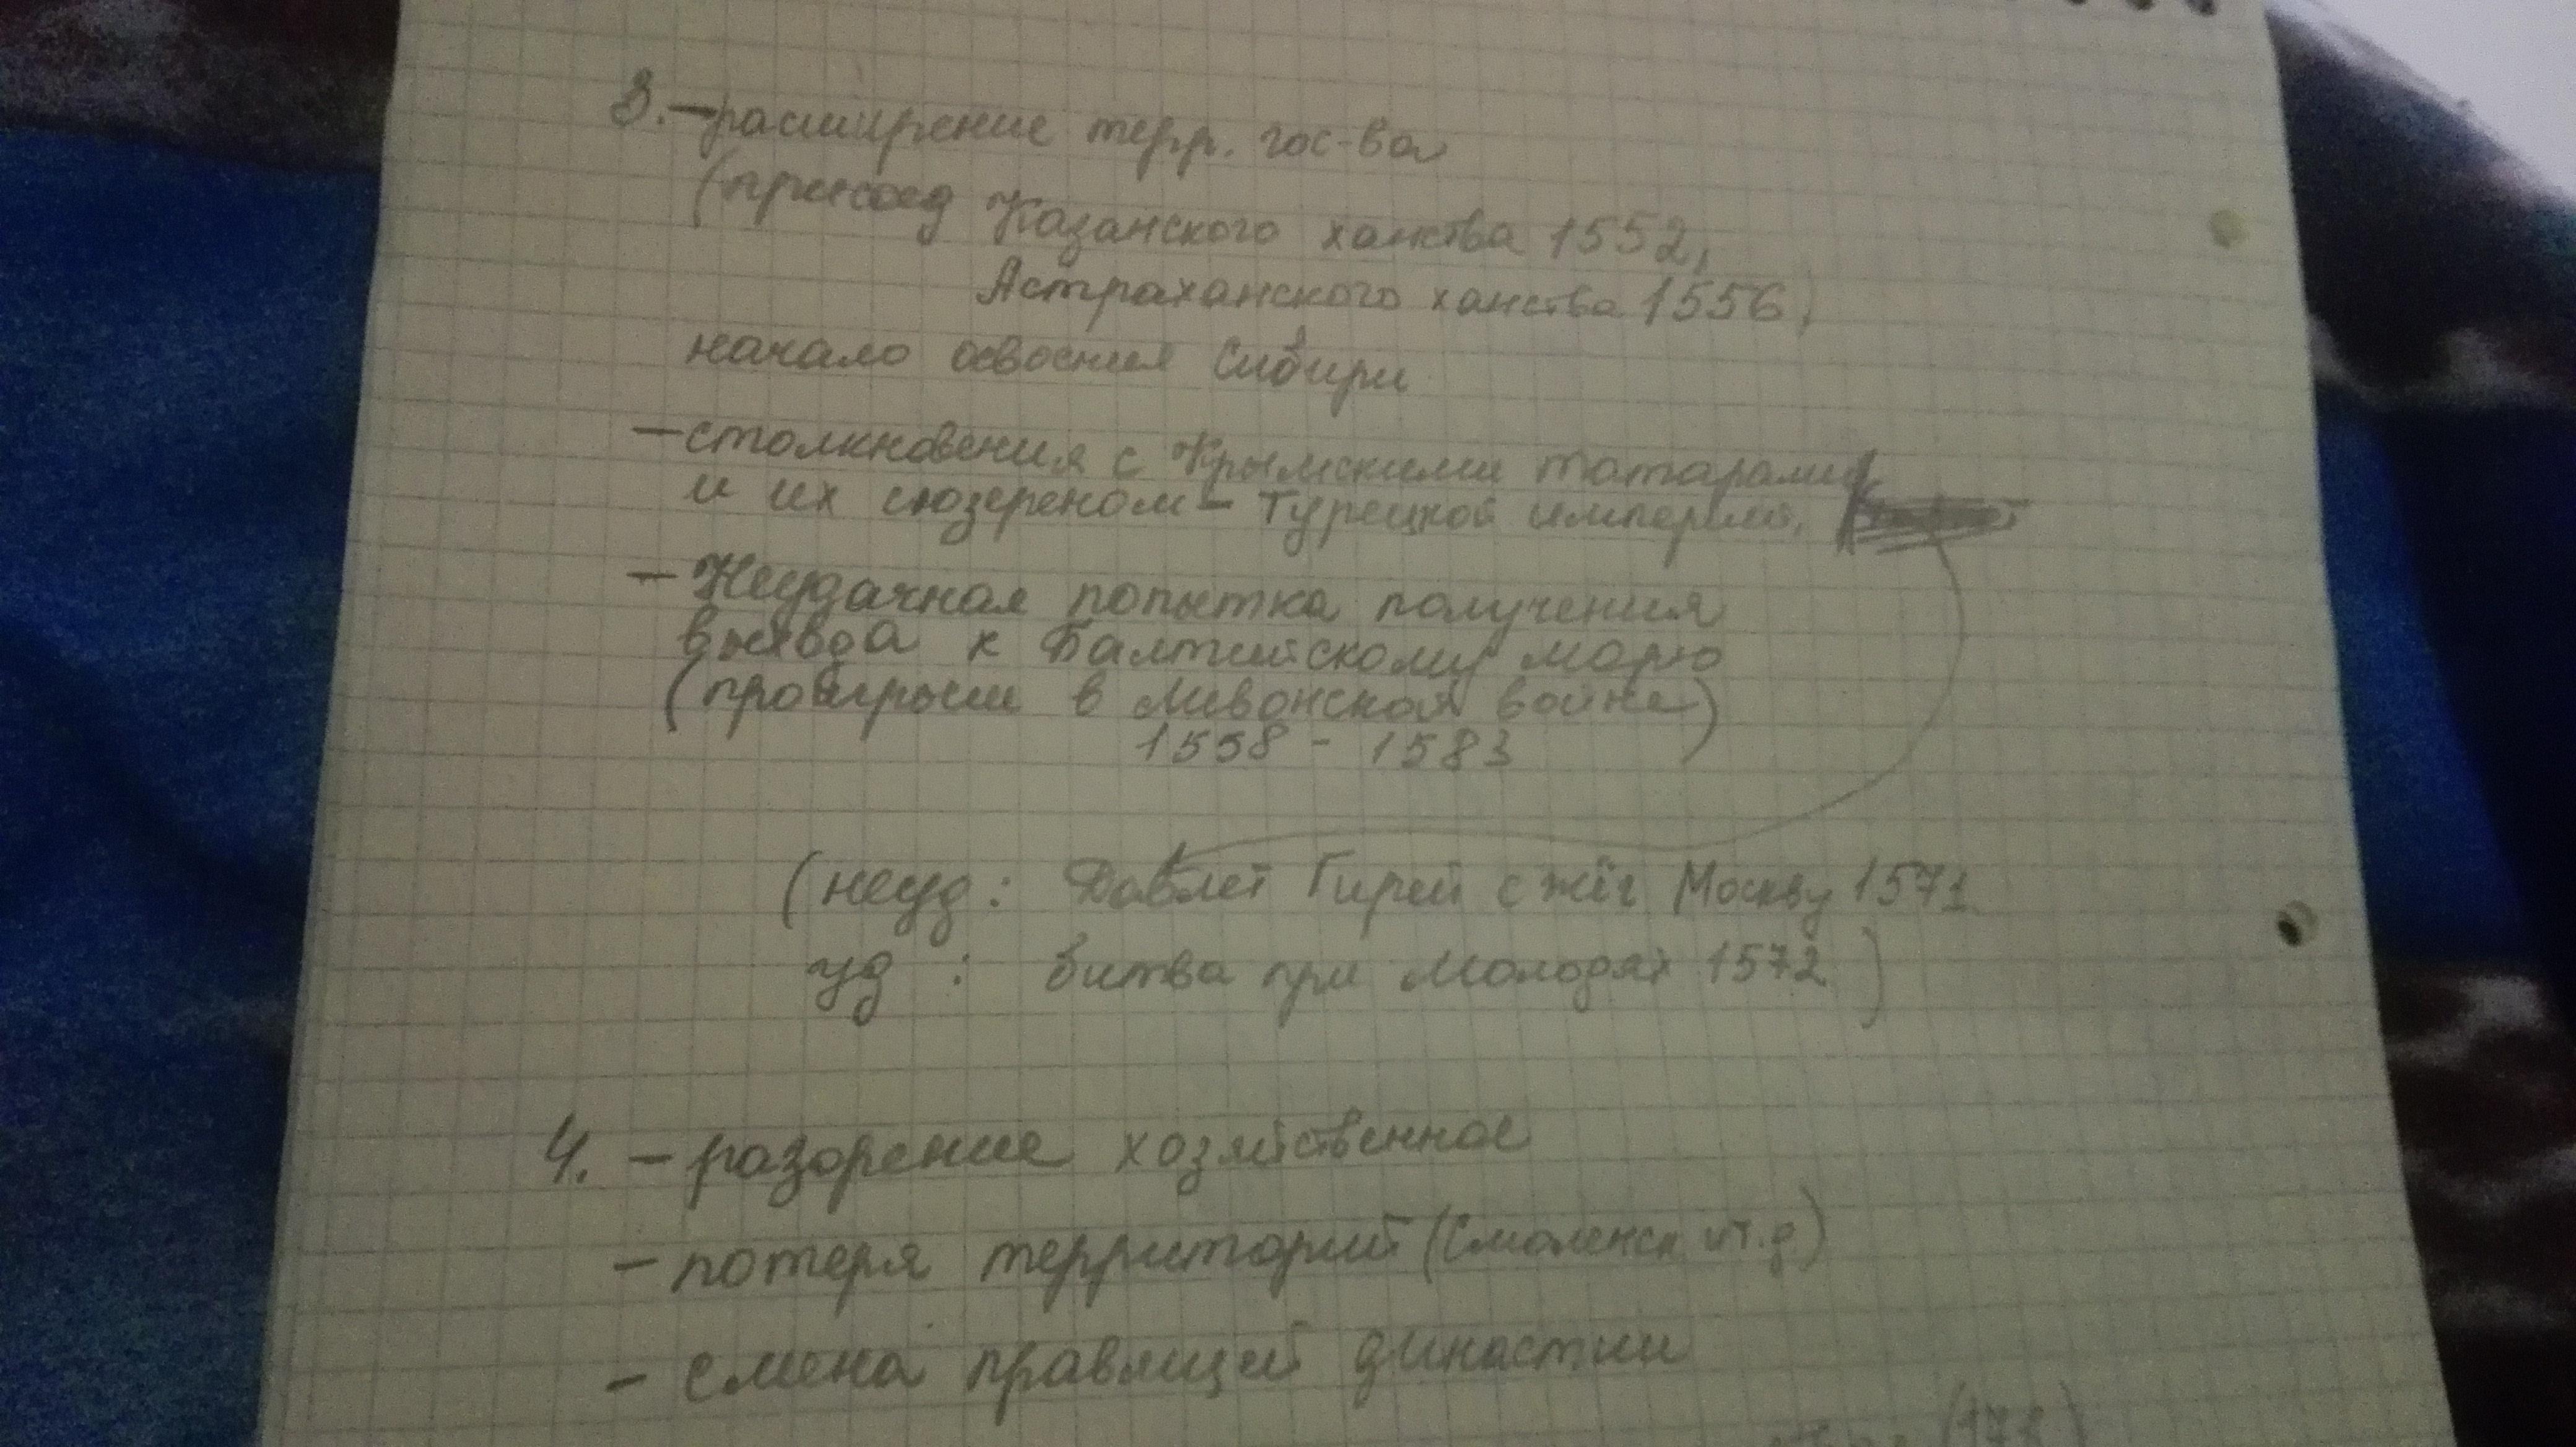 3. – расширение терр. гос-ва
(присоед Казанского ханства 1552,
Астраханского ханства 1556,
начало освоения Сибири
– столкновения с Крымскими татарами
и их сюзереном – Турецкой империей,
– Неудачная попытка получения
выхода к Балтийскому морю
(проигрыш в Ливонской войне)
1558 – 1583
(неуд: Давлет Гирей сжёг Москву 1571
уд : битва при Молодях 1572)
4. – разорение хозяйственное
– потеря территорий (Смоленск и т.д)
– смена правящей династии